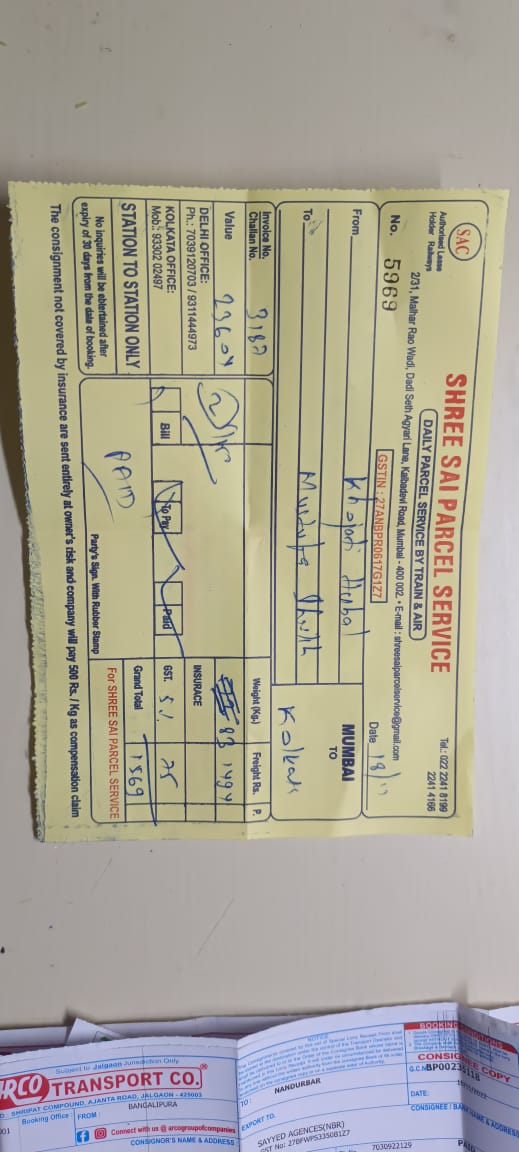 SAC
Authorised Lease
Holder Railways
SHREE SAI PARCEL SERVICE
Tel.: 022 2241 8199
2241 4166
DAILY PARCEL SERVICE BY TRAIN & AIR
2/31, Malhar Rao Wadi, Dadi Seth Agyari Lane, Kalbadevi Road, Mumbai - 400 002. • E-mail : shreesaiparcelservice@gmail.com
No. 5969
GSTIN : 27ANBPR0617G1Z7
Date 18/
From
Herbal
MUMBAI
TO
To
Invoice No.
Challan No. 3187
Weight (Kg.)
Freight Rs.
P.
Value 23604
83
1494
DELHI OFFICE:
Ph.: 7039120703 / 9311444973
INSURACE
KOLKATA OFFICE:
Mob.: 93302 02497
Bill
To Pay
Paid
GST. 5%
75
STATION TO STATION ONLY
PAID
Grand Total
1569
No inquiries will be ebtertained after
expiry of 30 days from the date of booking.
Party's Sign. With Rubber Stamp
For SHREE SAI PARCEL SERVICE
The consignment not covered by insurance are sent entirely at owner's risk and company will pay 500 Rs. / Kg as compensation claim
Subject to Jalgaon Jurisdiction Only
RCO TRANSPORT CO.
SHRIPAT COMPOUND, AJANTA ROAD, JALGAON - 425003
Booking Office
FROM :
BANGALIPURA
Connect with us @ arcogroupofcompanies
CONSIGNOR'S NAME & ADDRESS
NOTICE
TO :
NANDURBAR
EXPORT TO.
SAYYED AGENCES(NBR)
7030922129
BOOKING
CONSIGNEE COPY
G.C.N
DATE:
CONSIGNEE / BANK NAME & ADDRESS
PAID